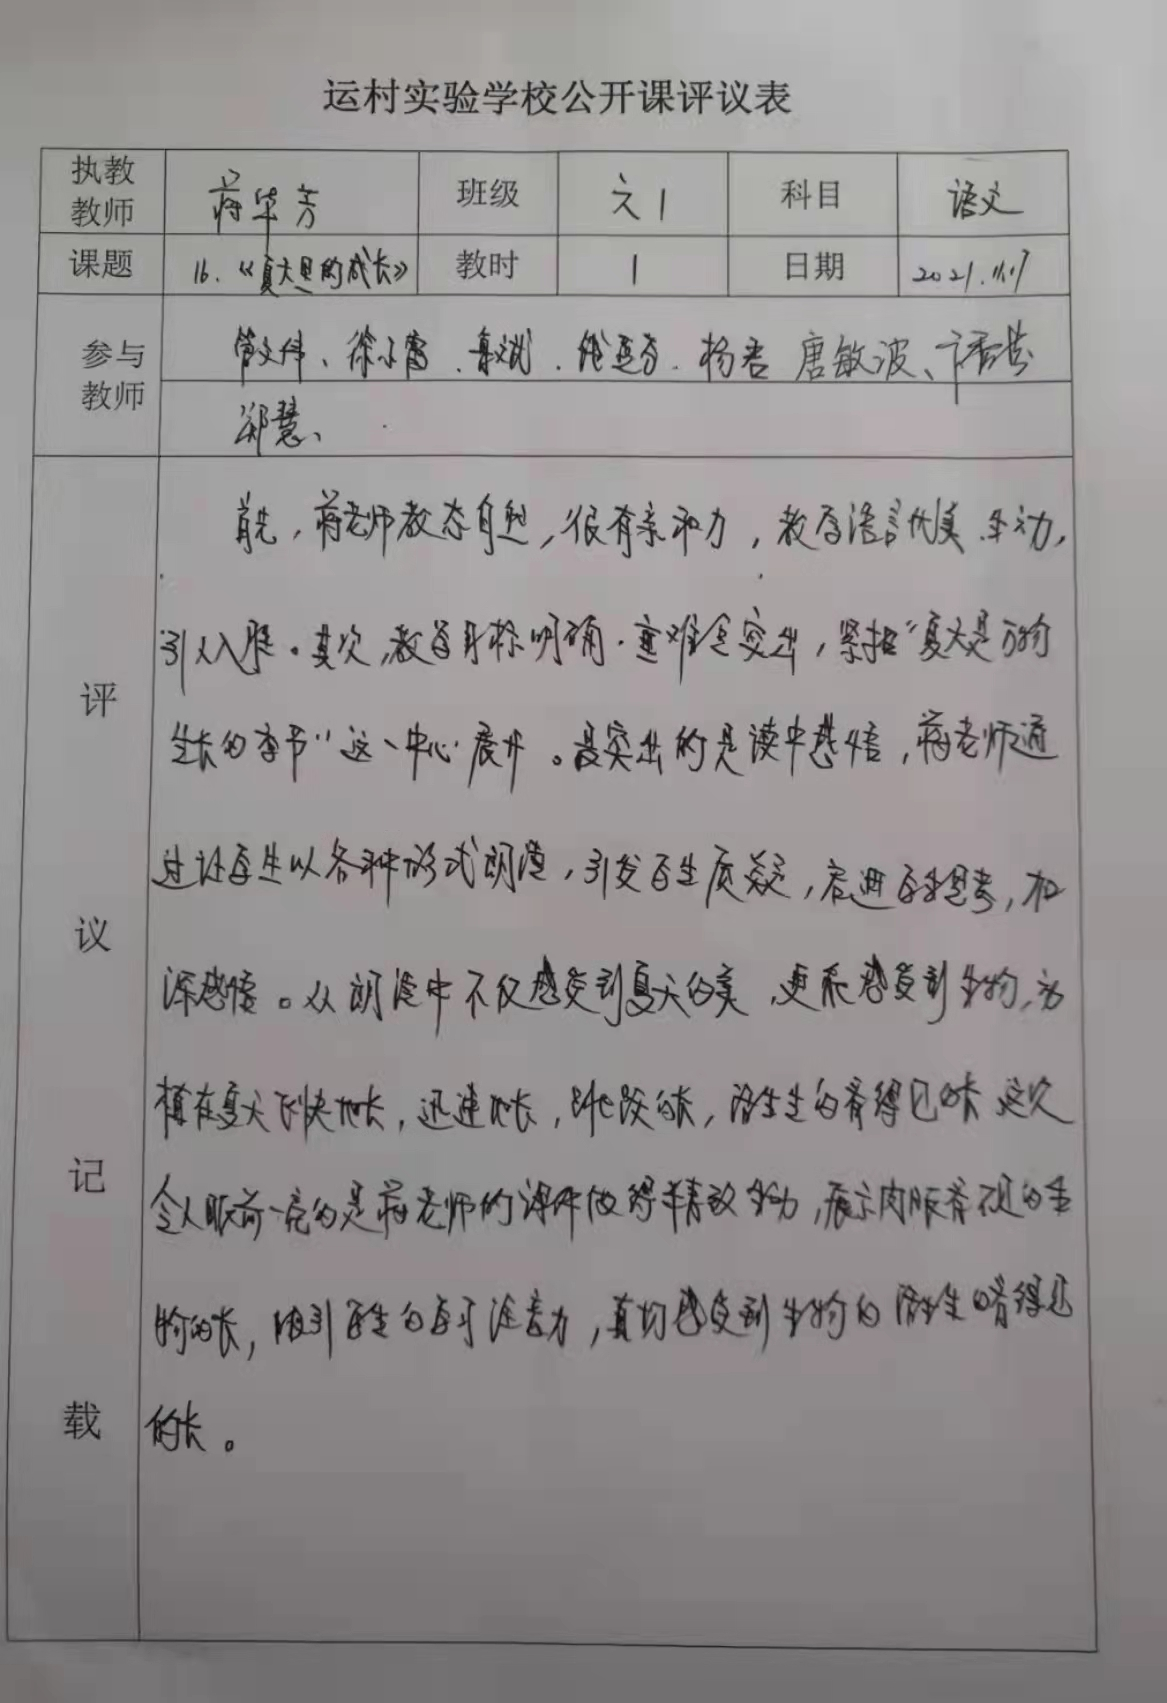 运村实验学校公开课评议表
执教教师 蒋华芳 班级 六1 科目 语文
课题 16.《夏天里的成长》 教时 1 日期 2021.11.17
参与教师 管文伟、徐小雷、杨君 唐敏波、
郑慧、
评议记载
首先，蒋老师教态自然，很有亲和力，教学语言优美、生动，
引人入胜。其次，教学目标明确，重难点突出，紧扣“夏天是万物
生长的季节”这一中心展开。最突出的是读中感悟，蒋老师通
过让学生以各种形式朗读，引发学生质疑，启迪学生思考，加
深感悟。从朗读中不仅感受到夏天的美，更能感受到生物，动
植在夏天飞快地长，迅速地长，跳跃的长，活生生的看得见的长
令人眼前一亮的是蒋老师的课件做得精致生动，展示肉眼看不见的生
物的长，吸引学生的注意力，真切感受到生物的活生生的看得见
的长。